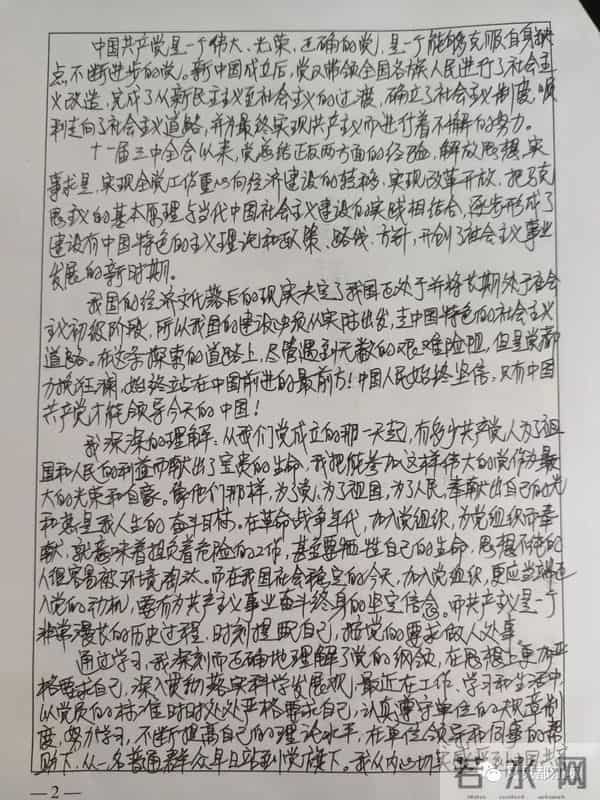 中国共产党是一个伟大、光荣、正确的党,是一个能够克服自身缺
点,不断进步的党。新中国成立后,党又带领全国各族人民进行了社会主
义改造,完成了从新民主主义至社会主义的过渡,确立了社会主义制度,顺
利走向了社会主义道路,并为最终实现共产主义而进行着不懈的努力。
十一届三中全会以来,党总结正反两方面的经验,解放思想,实
事求是,实现全党工作重心向经济建设的转移,实现改革开放,把马克
思主义的基本原理与当代中国社会主义建设的实践相结合,逐步形成了
建设有中国特色的主义理论和政策、路线、方针,开创了社会主义事业
发展的新时期。
我国的经济文化落后的现实决定了我国正处于并将长期处于社会
主义初级阶段,所以我国的建设必须从实际出发,走中国特色的社会主义
道路。在这条探索的道路上,尽管遇到无数的艰难险阻,但是党都
力挽狂澜,始终站在中国前进的最前方!中国人民始终坚信:只有中国
共产党才能领导今天的中国!
我深深的理解:从我们党成立的那一天起,有多少共产党人为了祖
国和人民的利益而献出了宝贵的生命。我把能参加这样伟大的党作为最
大的光荣和自豪。像他们那样,为了党、为了祖国,为了人民,奉献出自己的光
和热是我人生的奋斗目标。在革命战争年代,加入党组织,为党组织而奉
献,就意味着担负着危险的工作,甚至要牺牲自己的生命,思想不纯的
人很容易被环境淘汰。而在我国社会稳定的今天,加入党组织,更应当端正
入党的动机,要有为共产主义事业奋斗终身的坚定信念。而共产主义是一个
非常漫长的历史过程,时刻提醒自己,按党的要求做人处事
通过学习,我深刻而正确地理解了党的纲领,在思想上更加严
格要求自己,深入贯彻落实科学发展观,最近在工作、学习和生活中,
以党员的标准时时处处严格要求自己,认真遵守单位的规章制
度,努力学习,不断提高自己的理论水平,在单位领导和同事的帮
助下,从一名普通群众早日站到党旗下。我从内心
若水网
—2—